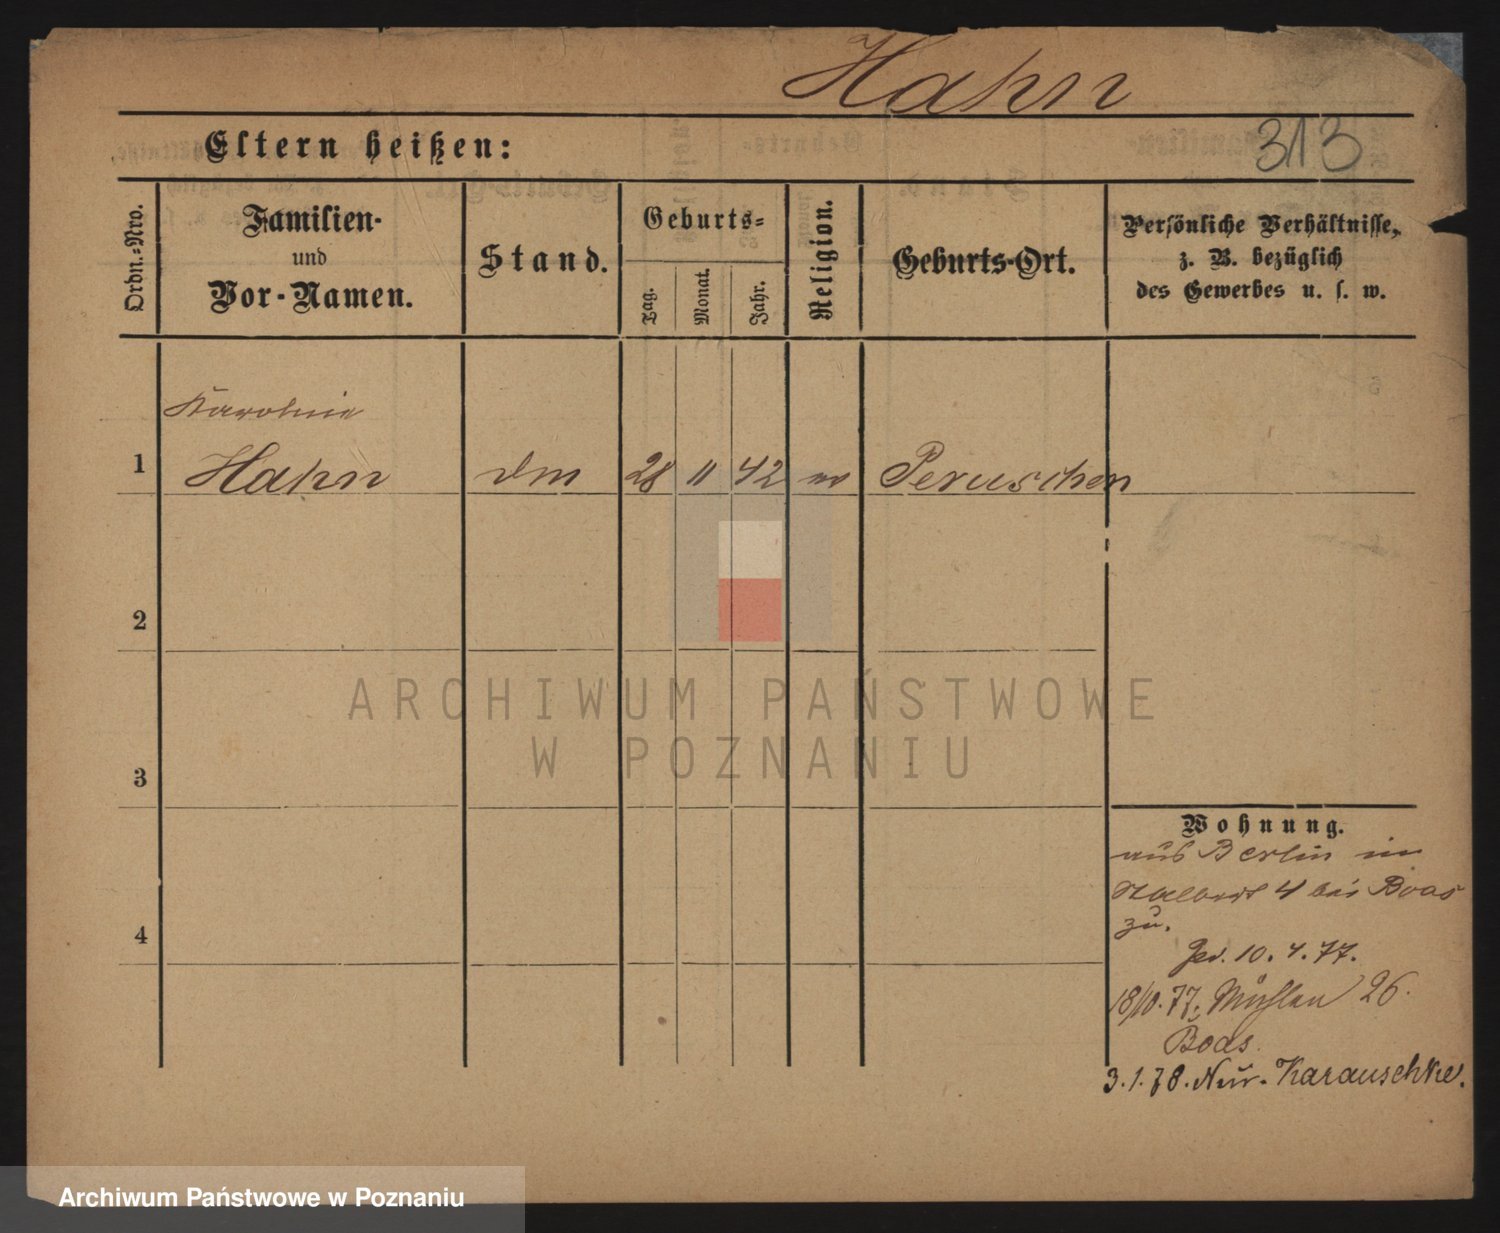 Hahn
313
Eltern heißen:
Ordn.-Nro.
Familien-
und
Vor-Namen.
Stand.
Geburts-
Tag.
Monat.
Jahr.
Religion.
Geburts-Ort.
Persönliche Verhältnisse,
z. B. bezüglich
des Gewerbes u. s. w.
Karoline
1 Hahn 28 11 42 Peruschen
2
3
4
ARCHIWUM PAŃSTWOWE
W POZNANIU
Wohnung.
aus Berlin in
4 bei Boas
zu.
10.4.77.
18/10.77. Mühlen 26.
Boas.
3.1.78. Karauschke.
Archiwum Państwowe w Poznaniu